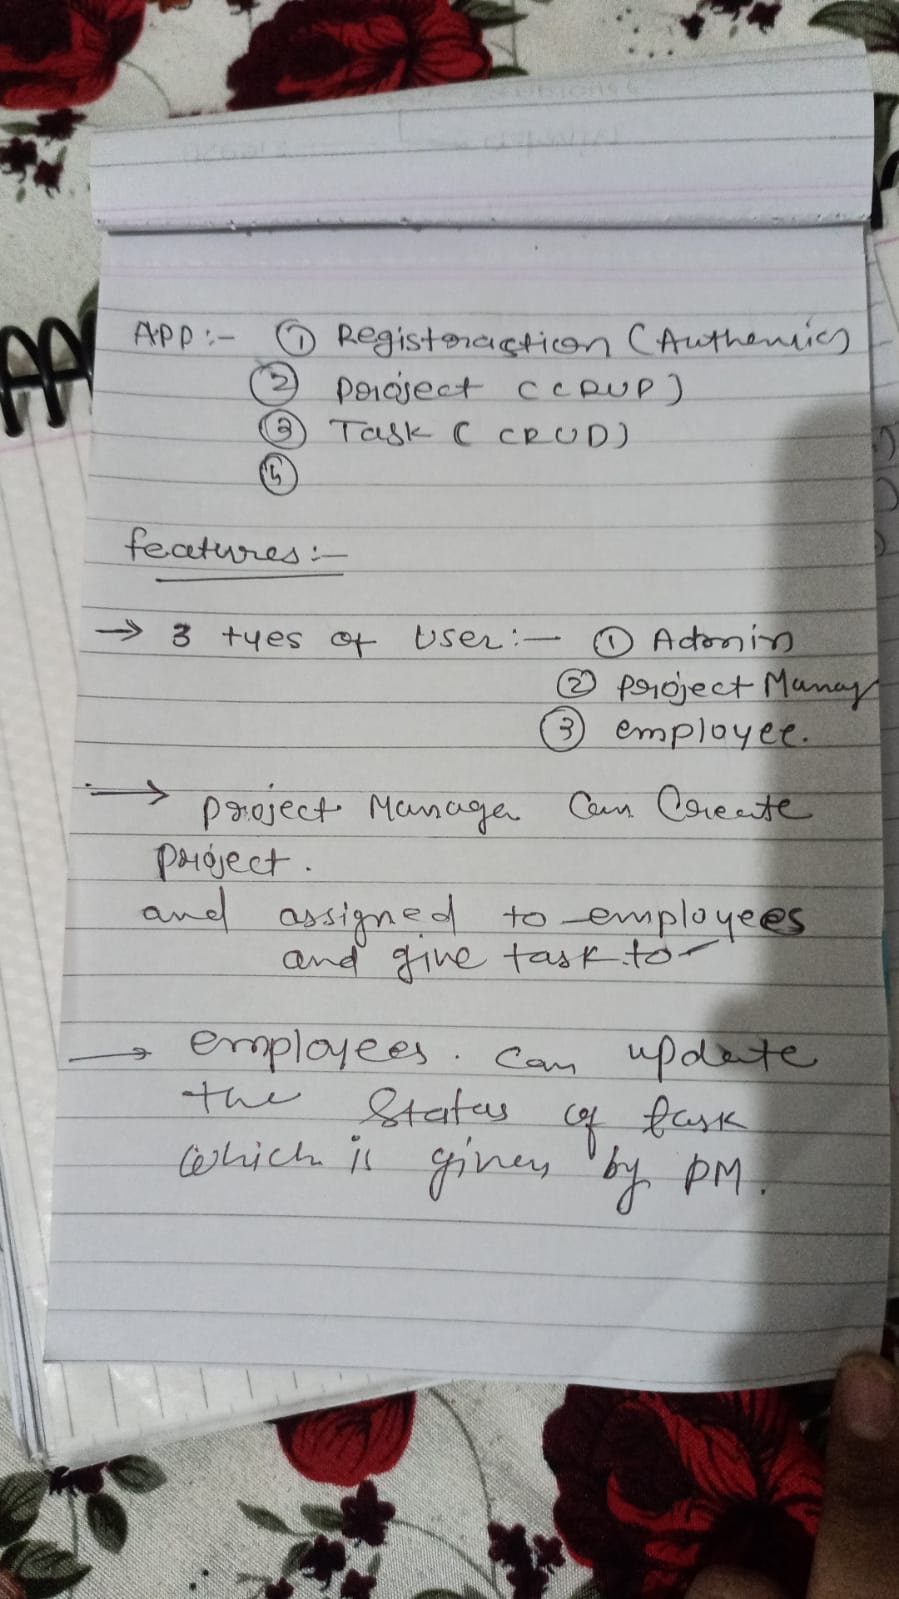 APP :- ① Registeraction (Authentic)
② Project (CRUD)
③ Task (CRUD)
④
features :-
→ 3 tyes of User :- ① Admin
② Project Manag
③ employee.
→ Project Manager Can Create
Project.
and assigned to employees
and give task to
→ employees. Can update
the Status of task
which is given by PM.